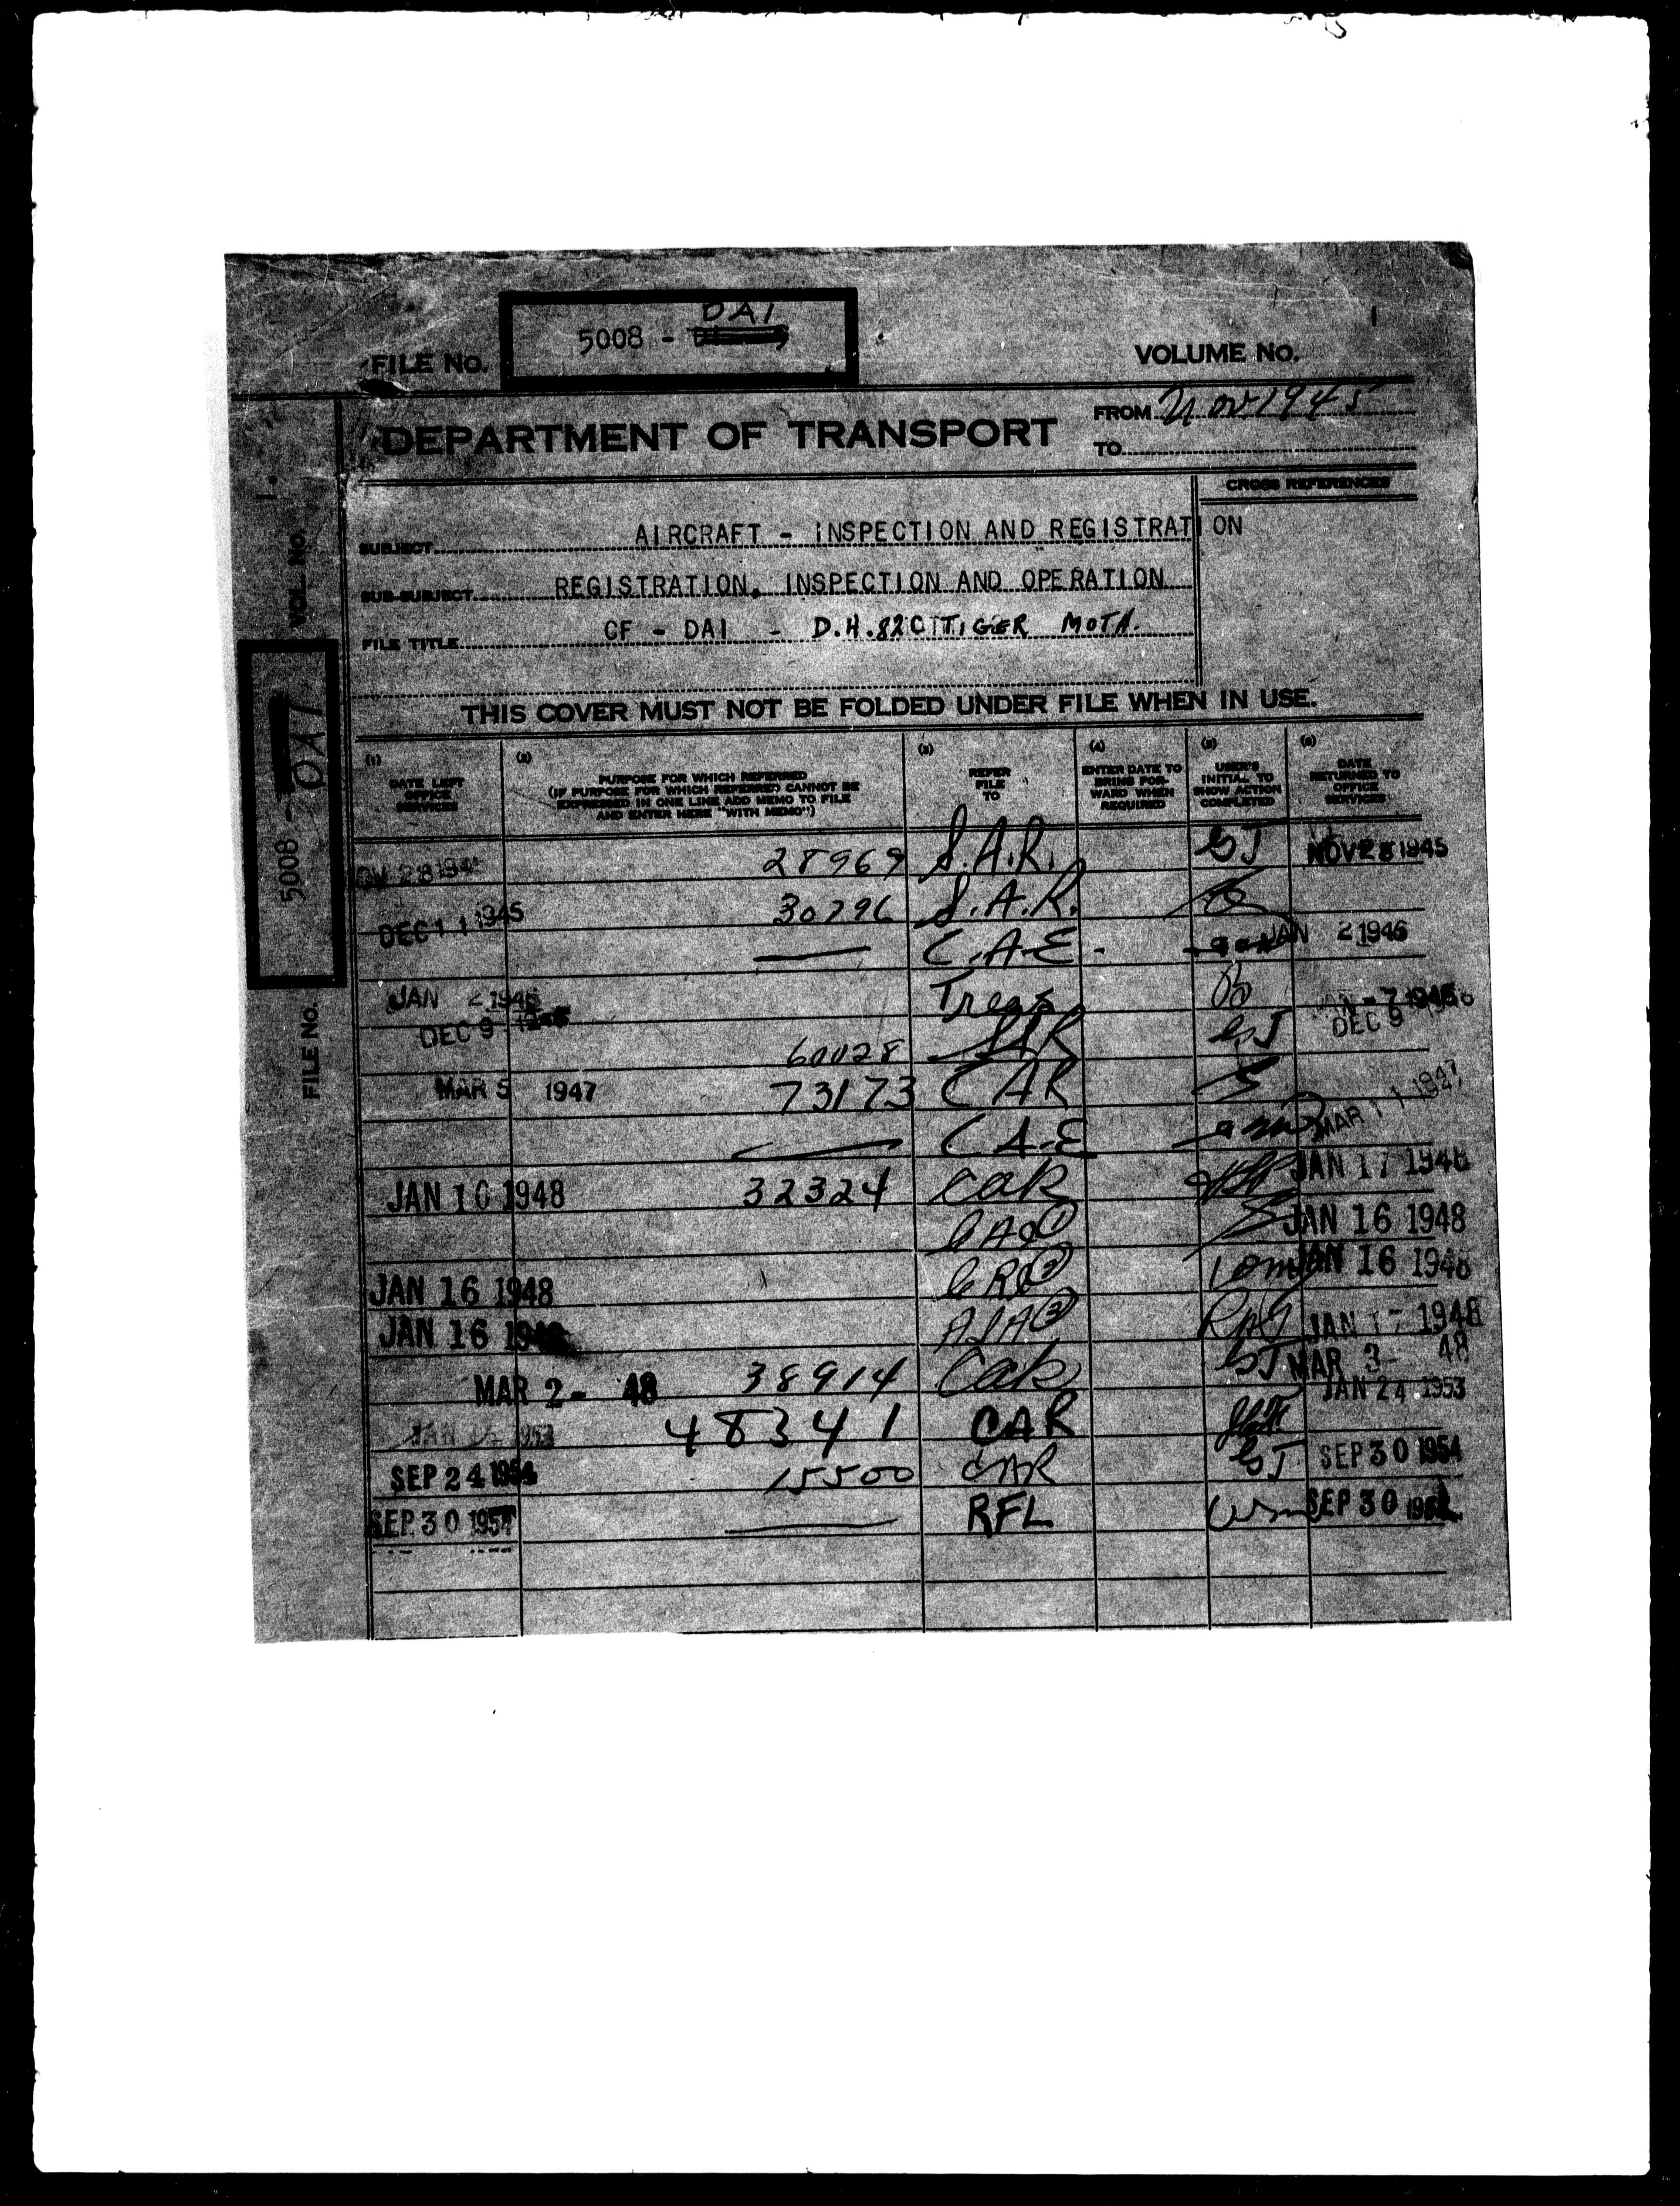 DAI
5008 -
FILE No.
VOLUME No. 1
DEPARTMENT OF TRANSPORT
FROM Nov 1945
TO
CROSS REFERENCES
SUBJECT AIRCRAFT - INSPECTION AND REGISTRATION
SUB-SUBJECT REGISTRATION, INSPECTION AND OPERATION
FILE TITLE CF - DAI - D.H.82C TIGER MOTH.
THIS COVER MUST NOT BE FOLDED UNDER FILE WHEN IN USE.
(1) DATE LEFT OFFICE SERVICES
(2) PURPOSE FOR WHICH REFERRED (IF PURPOSE FOR WHICH REFERRED CANNOT BE EXPRESSED IN ONE LINE ADD MEMO TO FILE AND ENTER HERE "WITH MEMO")
(3) REFER FILE TO
(4) ENTER DATE TO BRING FORWARD WHEN REQUIRED
(5) USER'S INITIAL TO SHOW ACTION COMPLETED
(6) DATE RETURNED TO OFFICE SERVICES
28 28969 S.A.R. GJ NOV 28 1945
DEC 11 1945 30796 S.A.R.
C.A-E - JAN 2 1946
JAN 2 1946 Treas JAN - 7 1946
DEC 9 60028 SAR GJ DEC 9 1946
MAR 5 1947 73173 CAR
CA-E MAR 11 1947
JAN 10 1948 32324 CAR JAN 17 1948
JAN 16 1948
JAN 16 1948 JAN 16 1948
JAN 16 1948 AIA JAN 17 1948
MAR 2 - 48 38914 CAR GJ MAR 3 - 48
JAN 1953 48341 CAR JAN 24 1953
SEP 24 1954 15500 CAR GJ SEP 30 1954
SEP 30 1954 RFL SEP 30
VOL. NO. 1.
5008 - DAI
FILE NO.